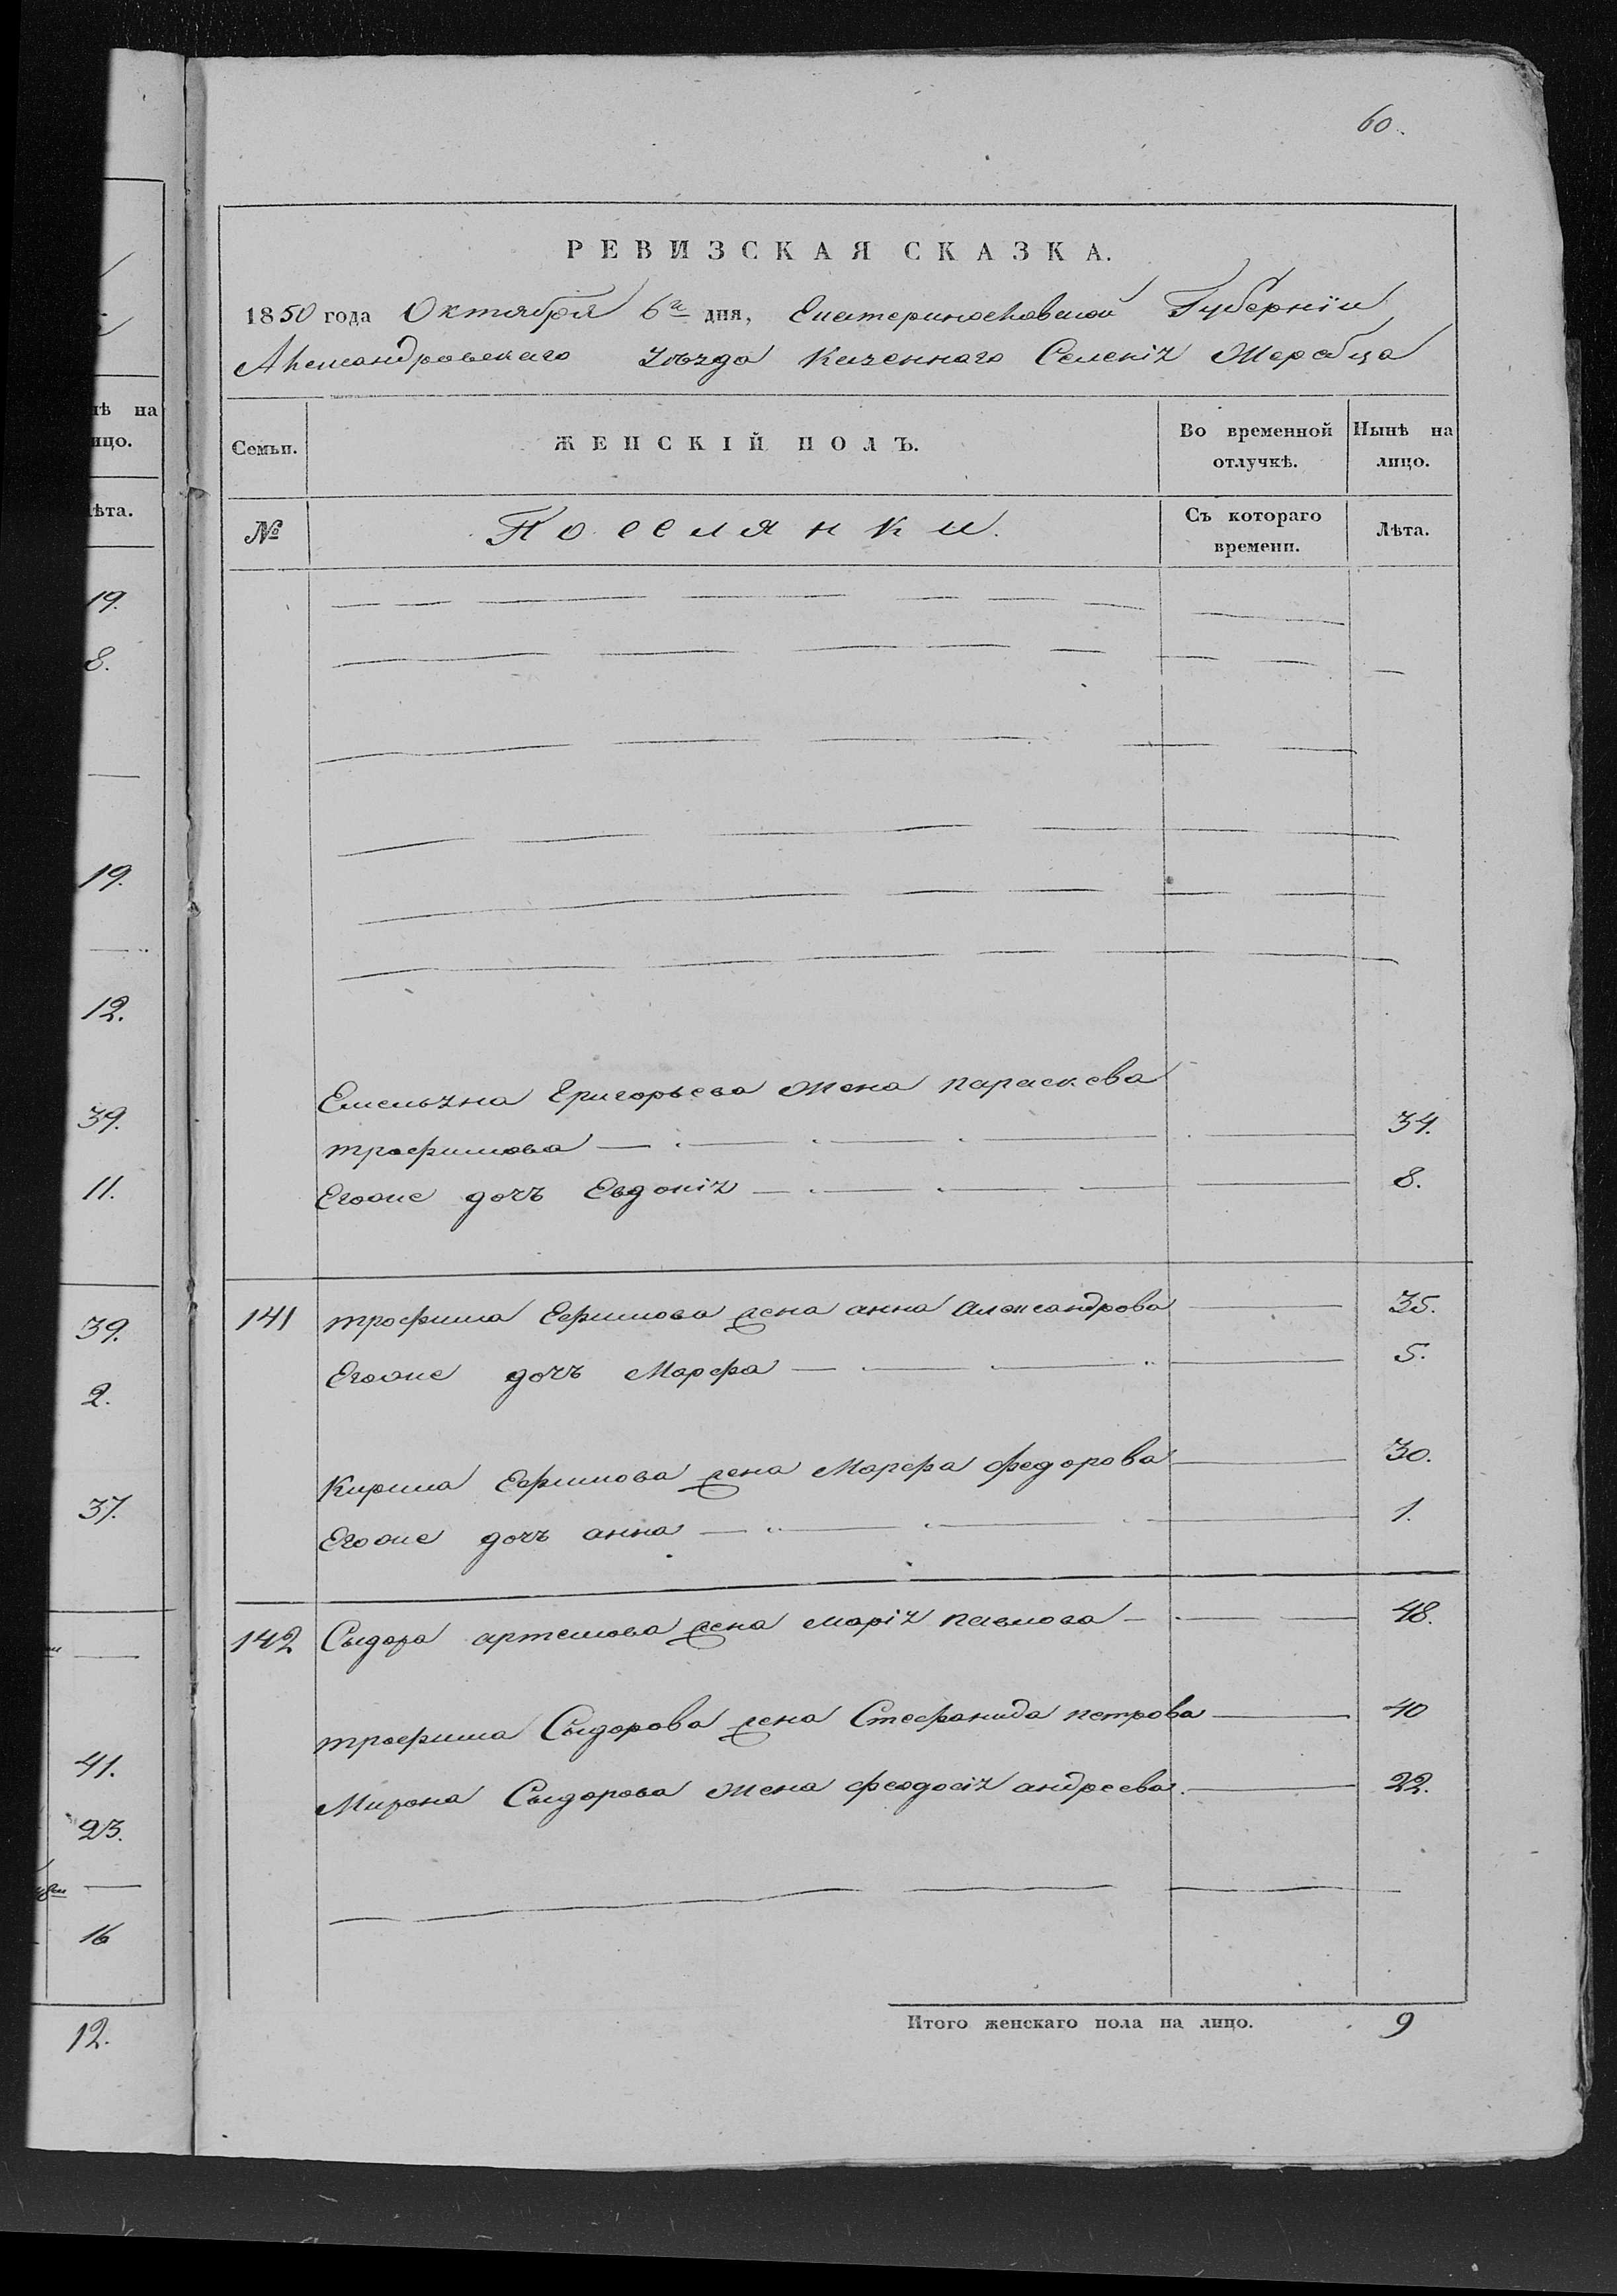 60.
РЕВИЗСКАЯ СКАЗКА.
1850 года Октября 6го дня, Екатеринославской Губерніи
Александровскаго уѣзда казеннаго Селенія Жеребца
Семьи.
ЖЕНСКІЙ ПОЛЪ.
Во временной отлучкѣ.
Нынѣ на лицо.
№
Поселянки.
Съ котораго времени.
Лѣта.
Емельяна Григорьева жена параскева
трофимова 34.
Егоже дочь Евдокія 8.
141 трофима Ефимова жена анна александрова 35.
Егоже дочь Марфа 5.
Кирила Ефимова жена Марфа федорова 30.
Егоже дочь анна 1.
142 Сыдора артемова жена марія павлова 48.
трофима Сыдорова жена Стефанида петрова 40
Мирона Сыдорова жена феодосія андреева. 22.
Итого женскаго пола на лицо. 9
нѣ на
ицо.
ѣта.
19.
8.
19.
12.
39.
11.
39.
2.
37.
41.
23.
16
12.